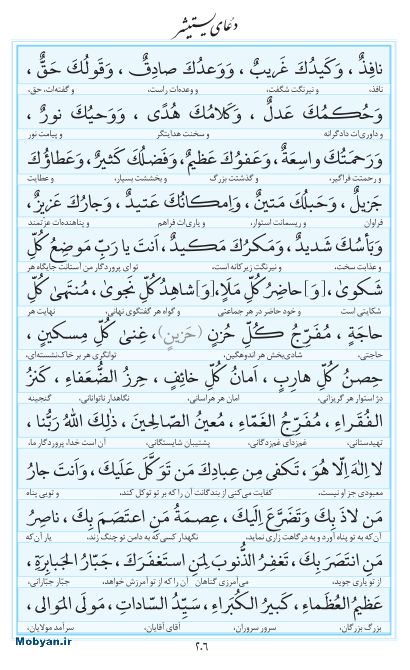 دعای یستشیر
نافِذٌ ، وَكَيدُكَ غَريبٌ ، وَوَعدُكَ صادِقٌ ، وَقَولُكَ حَقٌّ ،
نافذ، و نیرنگت شگفت، و وعده‌ات راست، و گفته‌ات، حق،
وَحُكمُكَ عَدلٌ ، وَكَلامُكَ هُدًى ، وَوَحيُكَ نورٌ ،
و داوری‌ات دادگرانه و سخنت هدایتگر و پیامت نور
وَرَحمَتُكَ واسِعَةٌ ، وَعَفوُكَ عَظيمٌ ، وَفَضلُكَ كَثيرٌ ، وَعَطاؤُكَ
و رحمتت فراگیر، و گذشتت بزرگ و بخششت بسیار، و عطایت
جَزيلٌ ، وَحَبلُكَ مَتينٌ ، وَإمكانُكَ عَتيدٌ ، وَجارُكَ عَزيزٌ ،
فراوان و ریسمانت استوار، و یاری‌ات فراهم و پناهنده‌ات عزتمند
وَبَأسُكَ شَديدٌ ، وَمَكرُكَ مَكيدٌ ، اَنتَ يا رَبِّ مَوضِعُ كُلِّ
و عذابت سخت، و نیرنگت زیرکانه است. تو ای پروردگار من آستانت جایگاه هر
شَكوىٰ ، [وَ] حاضِرُ كُلِّ مَلَأٍ، [وَ] شاهِدُ كُلِّ نَجوىٰ ، مُنتَهىٰ كُلِّ
شکایتی است و خود حاضر در هر جماعتی و گواه هر گفتگوی نهانی، نهایت هر
حاجَةٍ ، مُفَرِّجُ كُلِّ حُزنٍ (حَزينٍ) ، غِنىٰ كُلِّ مِسكينٍ ،
حاجتی، شادی‌بخش هر اندوهگین، توانگری هر بر خاک‌نشسته‌ای،
حِصنُ كُلِّ هارِبٍ ، اَمانُ كُلِّ خائِفٍ ، حِرزُ الضُّعَفاءِ ، كَنزُ
دژ استوار هر گریزانی، امان هر هراسانی، نگاهدار ناتوانانی، گنجینه
الفُقَراءِ ، مُفَرِّجُ الغَمّاءِ ، مُعينُ الصّالِحينَ ، ذٰلِكَ اللهُ رَبُّنا ،
تهیدستانی، غم‌زدای غم‌زدگانی، پشتیبان شایستگانی. آن است خدا، پروردگار ما،
لا اِلٰهَ اِلّا هُوَ ، تَكفي مِن عِبادِكَ مَن تَوَكَّلَ عَلَيكَ ، وَاَنتَ جارُ
معبودی جز او نیست. کفایت می‌کنی از بندگانت آن را که بر تو توکل کند، و تویی پناه
مَن لاذَ بِكَ وَتَضَرَّعَ اِلَيكَ ، عِصمَةُ مَنِ اعتَصَمَ بِكَ ، ناصِرُ
آن‌که به تو پناه آورد و به درگاهت زاری نماید، نگهدار کسی‌که به دامن تو چنگ زند، یار آن که
مَنِ انتَصَرَ بِكَ ، تَغفِرُ الذُّنوبَ لِمَنِ استَغفَرَكَ ، جَبّارُ الجَبابِرَةِ ،
از تو یاری جوید، می‌آمرزی گناهان آن را که از تو آمرزش خواهد. جبّار جبّارانی،
عَظيمُ العُظَماءِ ، كَبيرُ الكُبَراءِ ، سَيِّدُ السّاداتِ ، مَولَى المَوالي ،
بزرگ بزرگان، سرور سروران، آقای آقایان، سرآمد مولایان،
۲۰۶
Mobyan.ir